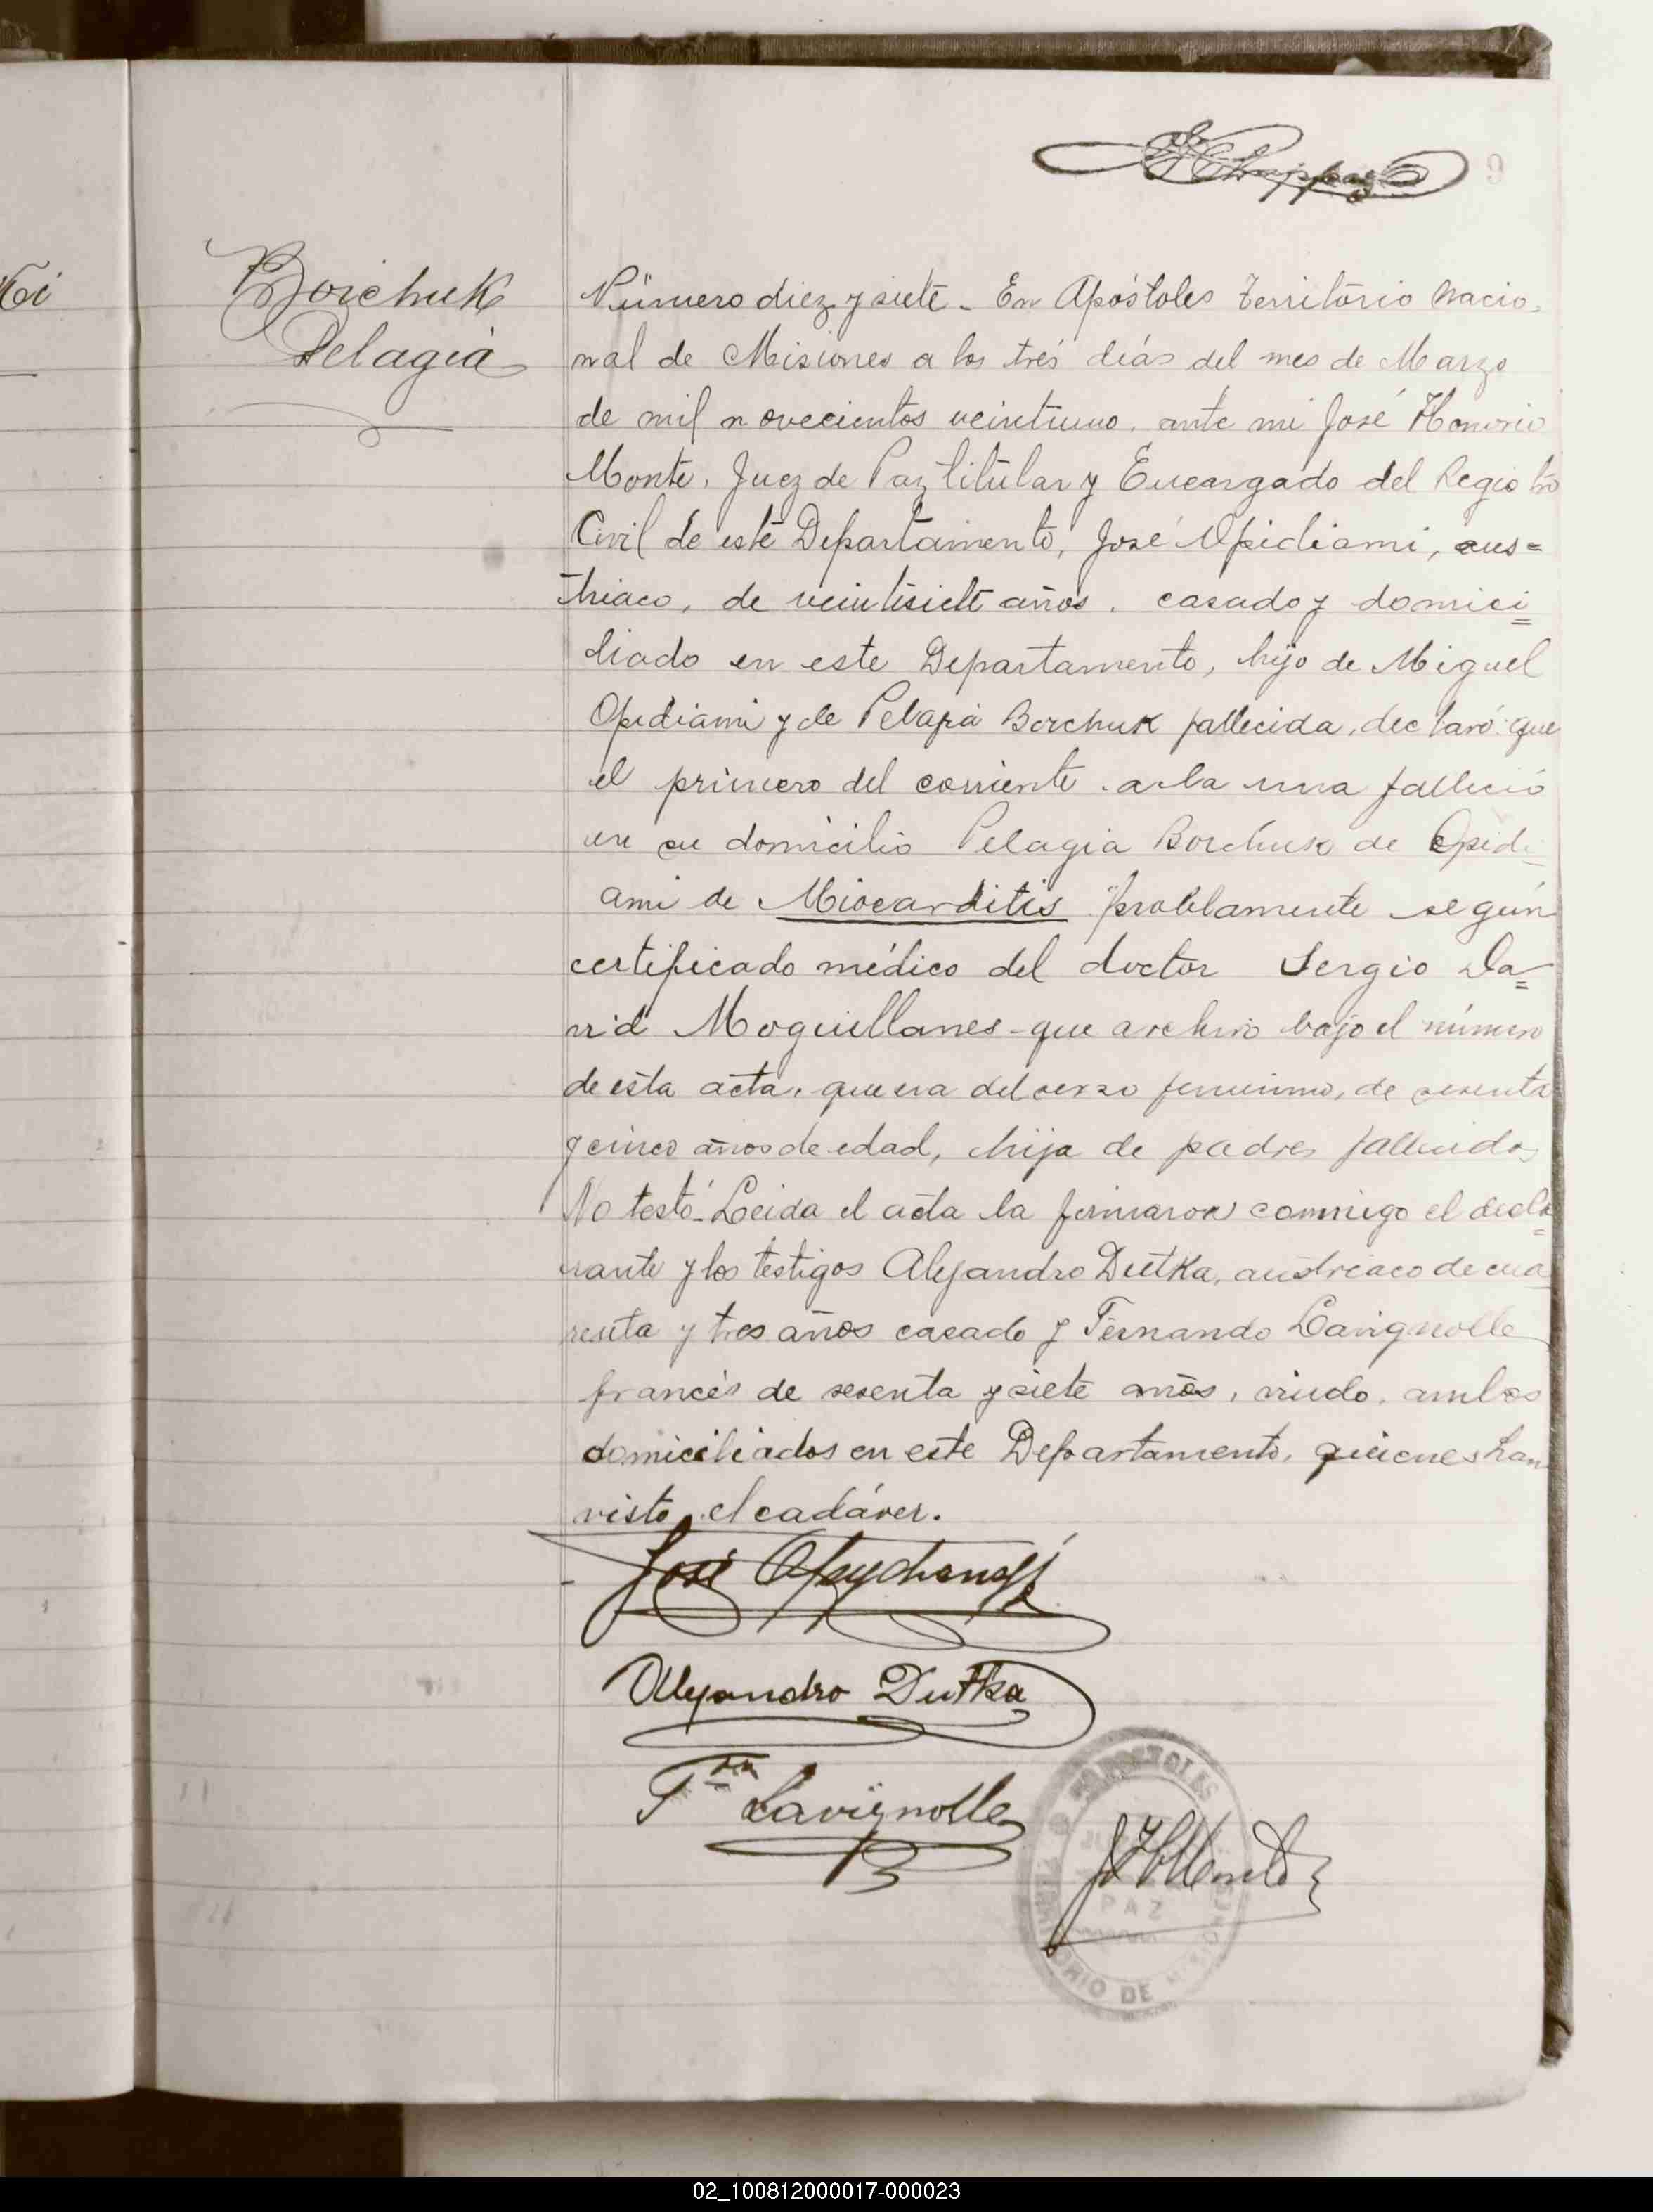 9
Borchuk
Pelagia
Número diez y siete - En Apóstoles Territorio Nacio-
nal de Misiones a los tres días del mes de Marzo
de mil novecientos veintiuno. ante mi José Honorio
Monte, Juez de Paz titular y Encargado del Registro
Civil de este Departamento, José Opidiami, aus=
triaco, de veintisiete años. casado y domici=
liado en este Departamento, hijo de Miguel
Opidiami y de Pelagia Borchuk fallecida, declaró: que
el primero del corriente. a la una falleció
en su domicilio Pelagia Borchuk de Opidi=
ami de Miocarditis problamente según
certificado médico del doctor Sergio Da=
vid Moguillanes - que archivo bajo el número
de esta acta, que era del sexso femenino, de sesenta
y cinco años de edad, hija de padres fallecidos
No testó - Leida el acta la firmaron conmigo el decla=
rante y los testigos Alejandro Dutka, austriaco de cua
renta y tres años casado y Fernando Lavignolle
francés de sesenta y siete años, viudo. ambos
domiciliados en este Departamento, quienes han
visto el cadáver.
José
Alejandro Dutka
Lavignolle
APOSTOLES
PAZ
TERRITORIO DE MISIONES
02_100812000017-000023